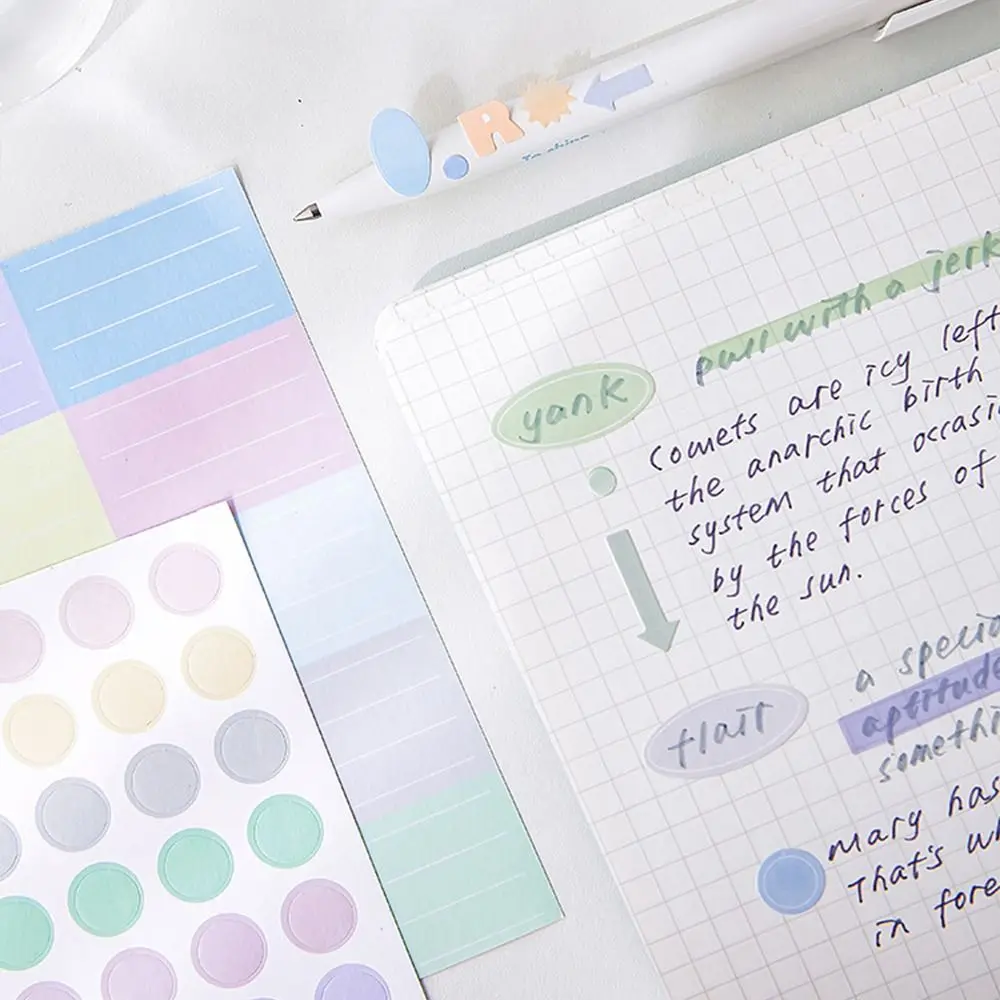 R
yank
pull with a jerk
Comets are icy left
the anarchic birth
system that occasi
by the forces of
the sun.
flair
a specia
aptitude
somethi
Mary has
That's wh
in fore